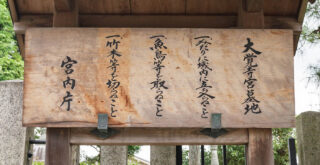 大覚寺宮墓地
一、みだりに域内に立入らぬこと
一、魚鳥等を取らぬこと
一、竹木等を切らぬこと
宮内庁